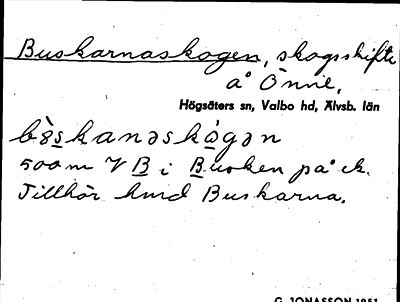 Buskarnaskogen, skogsskifte
å Önne,
Högsäters sn, Valbo hd, Älvsb. län
500 m V B i Busken på ek.
Tillhör hmd Buskarna.
G. JONASSON 1951